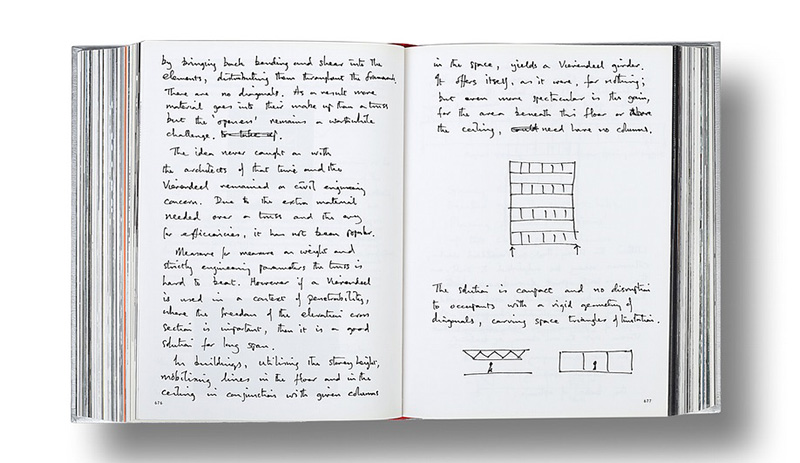 by bringing back bending and shear into the
elements, distributing them throughout the framework.
There are no diagonals. As a result more
material goes into their make up than a truss
but the 'openess' remains a worthwhile
challenge.
The idea never caught on with
the architects of that time and the
Vierendeel remained a civil engineering
concern. Due to the extra material
needed over a truss and the cry
for efficiencies, it has not been popular.
Measure for measure on weight and
strictly engineering parameters the truss is
hard to beat. However if a Vierendeel
is used in a context of penetrability,
where the freedom of the elevation cross
section is important, then it is a good
solution for long span.
In buildings, utilising the storey height,
mobilising lines in the floor and in the
ceiling in conjunction with given columns
676
in the space, yields a Vierendeel girder.
It offers itself, as it were, for nothing;
but even more spectacular is the gain,
for the area beneath this floor or above
the ceiling, need have no columns.
The solution is compact and no disruption
to occupants with a rigid geometry of
diagonals, carving space triangles of limitation.
677